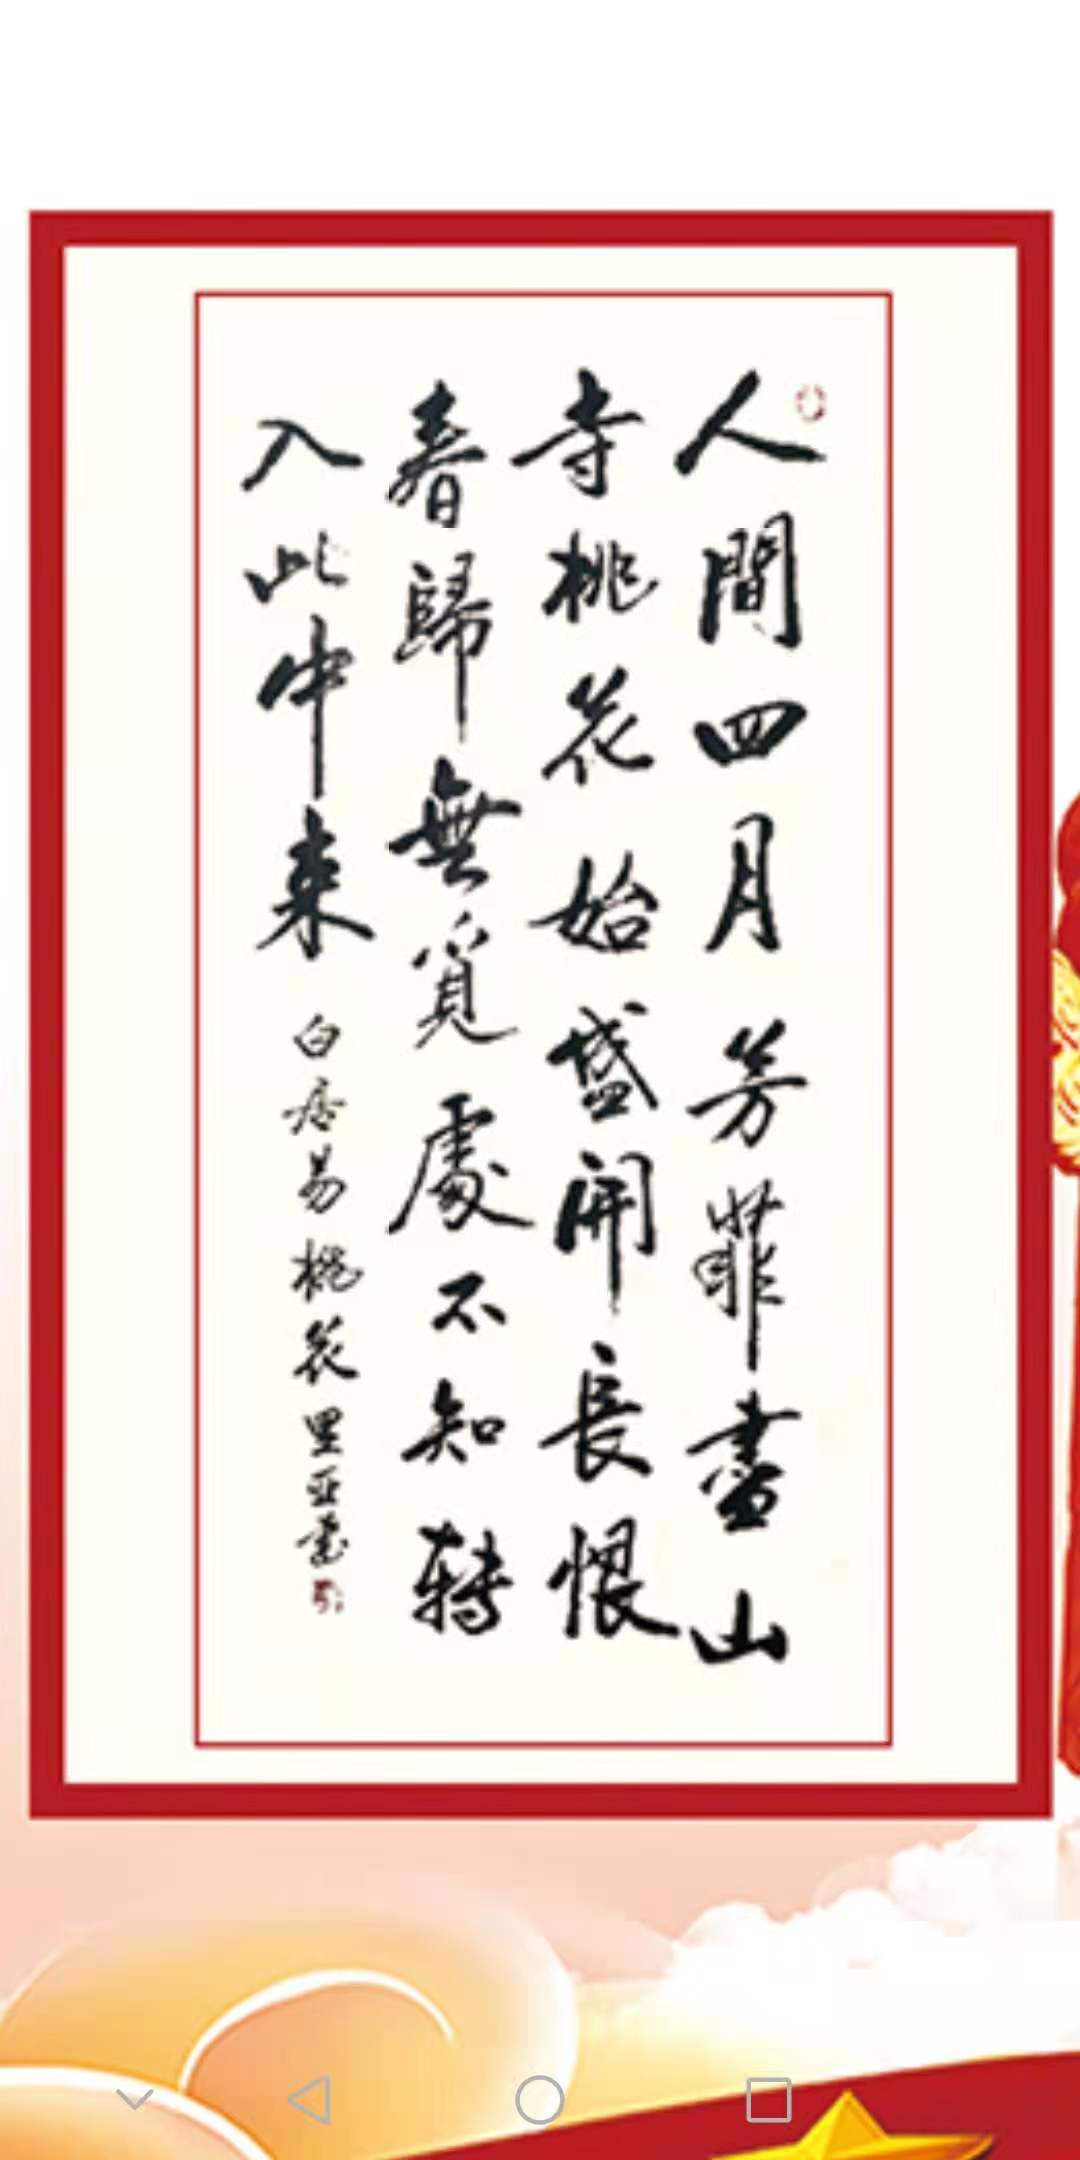 人間四月芳菲盡山
寺桃花始盛開長恨
春歸無覓處不知轉
入此中来
白居易桃花里亚書